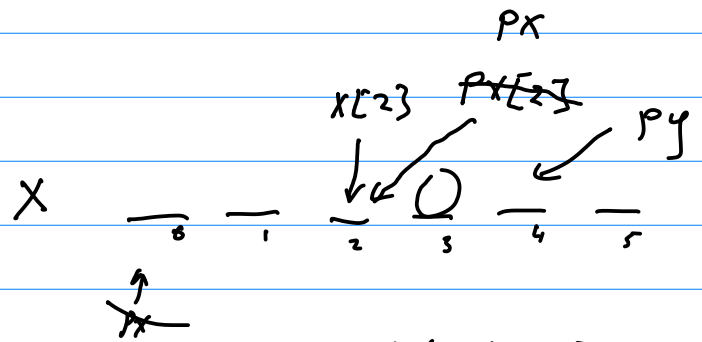 px
x[2] px[2] py
X 0
0 1 2 3 4 5
px